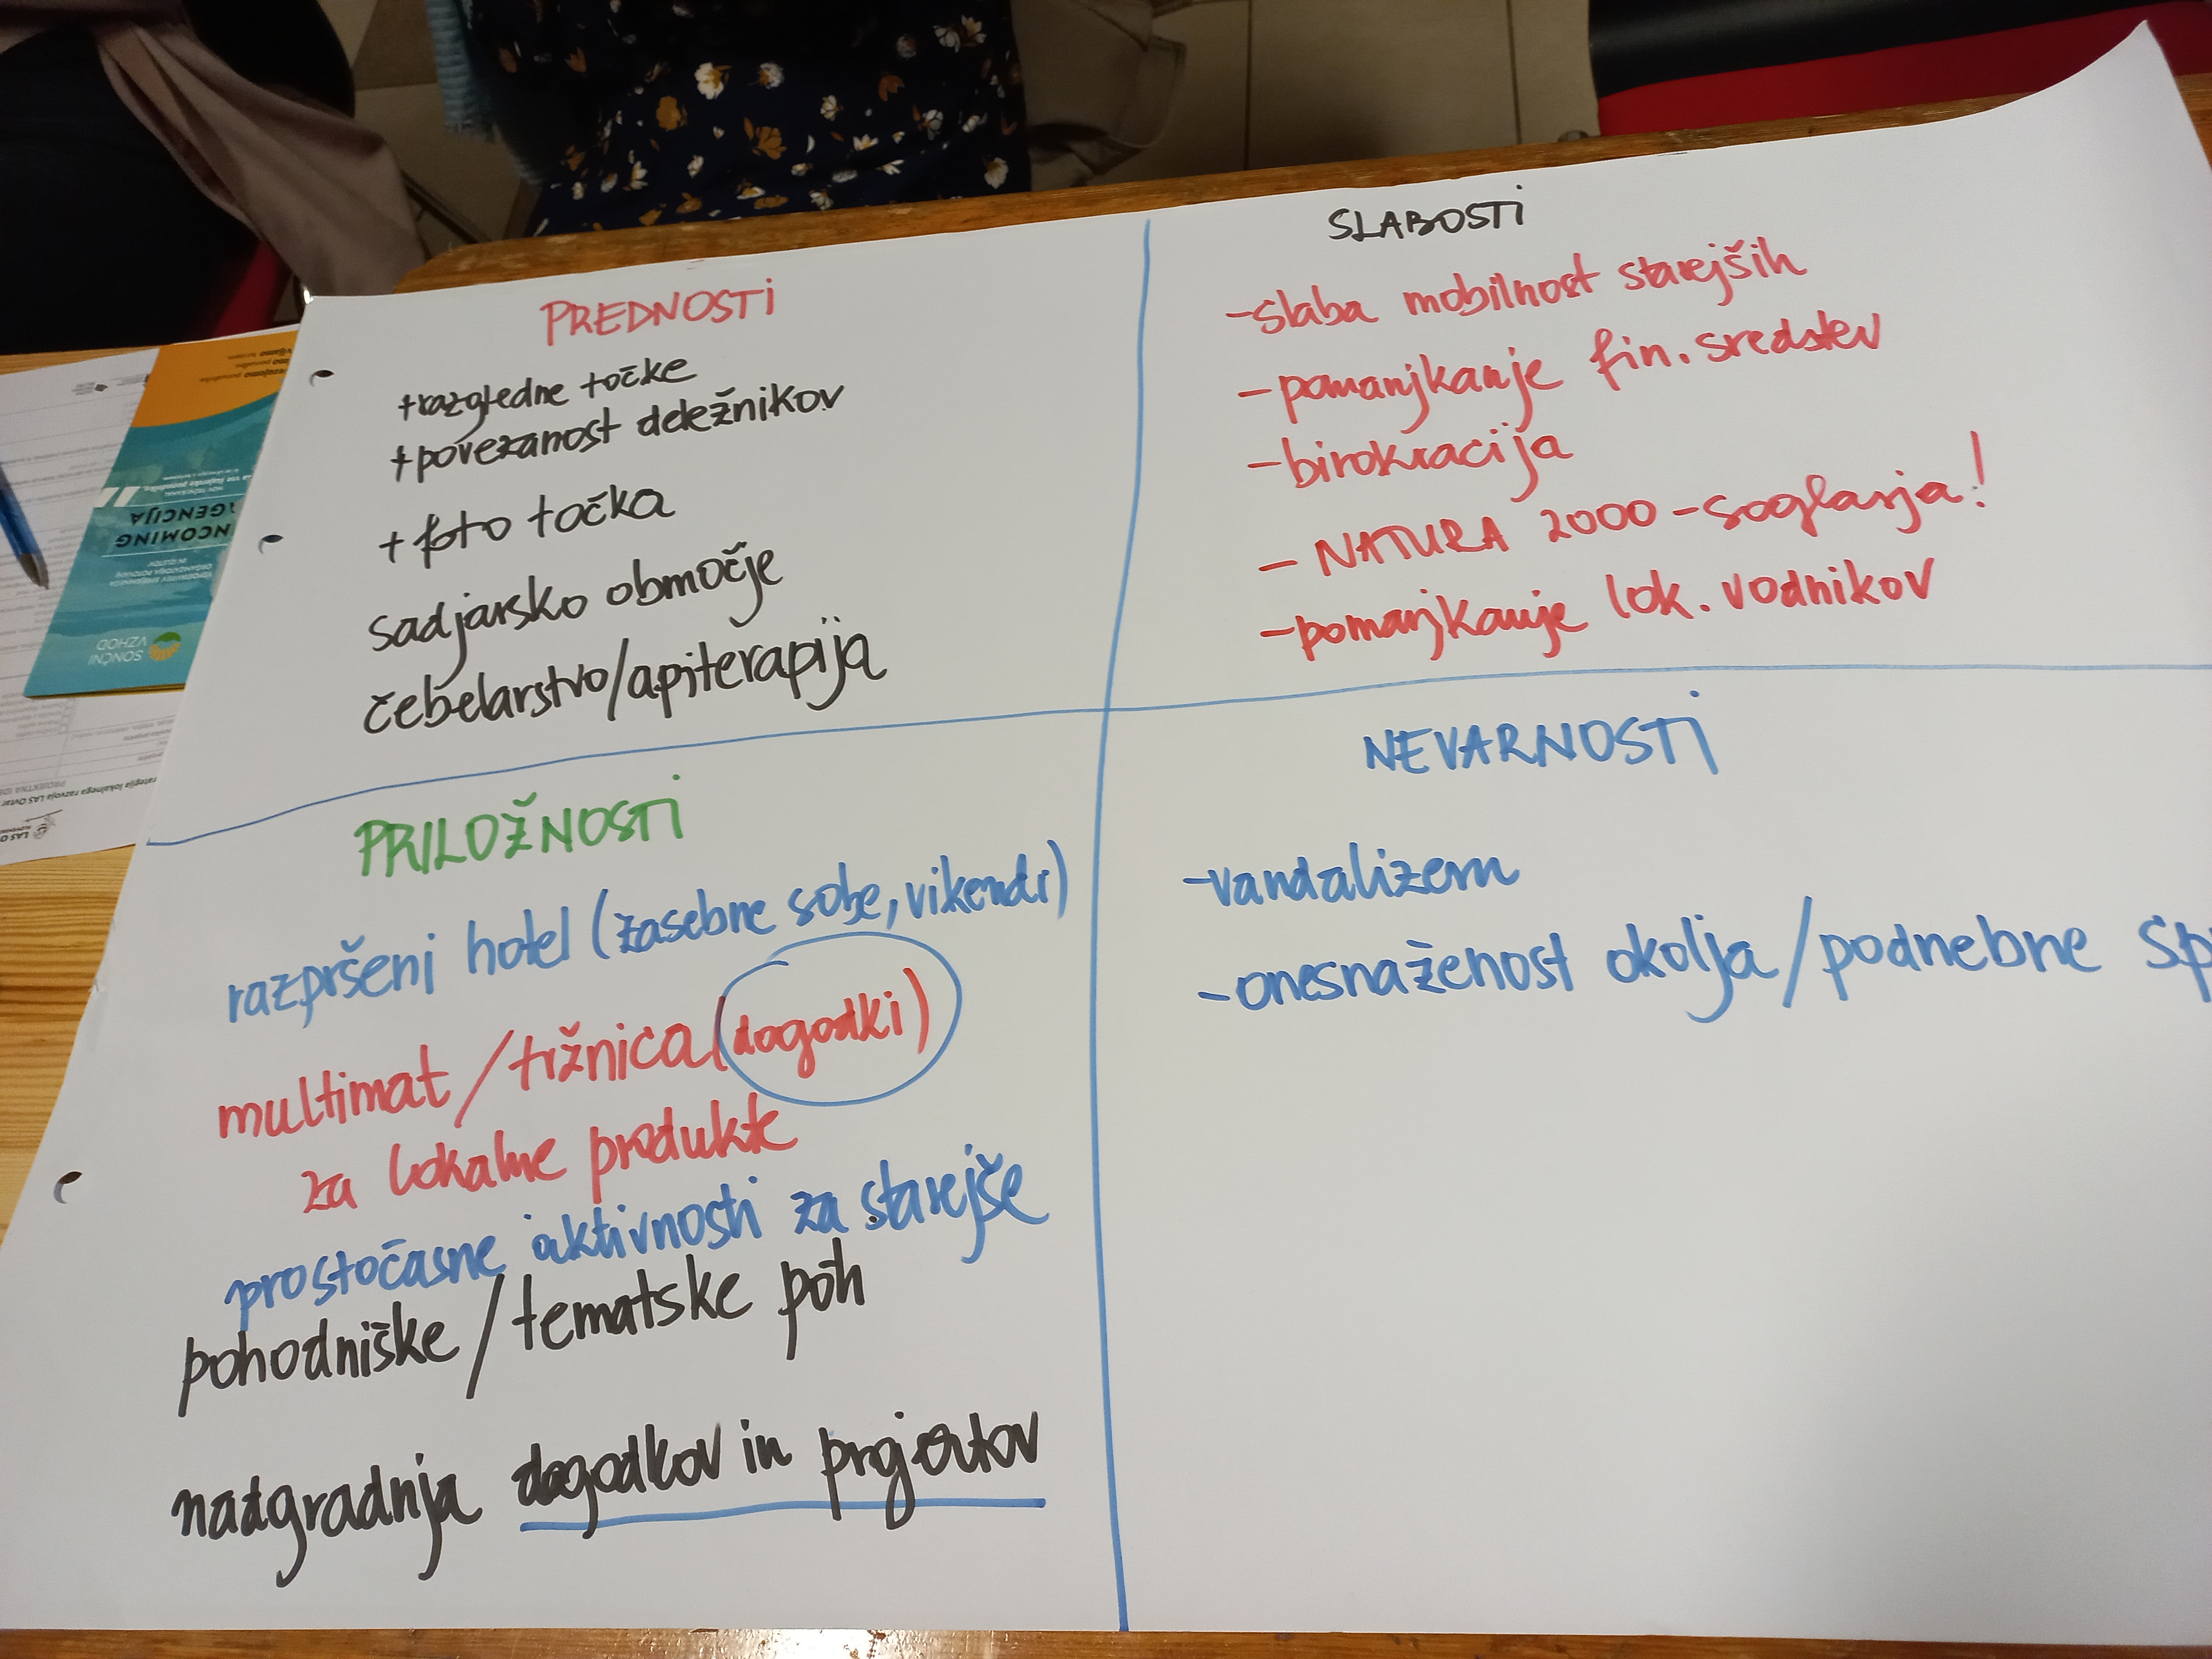 PREDNOSTI
+razgledne točke
+povezanost deležnikov
+ foto točka
sadjarsko območje
čebelarstvo/apiterapija
SLABOSTI
-slaba mobilnost starejših
- pomanjkanje fin. sredstev
- birokracija
- NATURA 2000 - soglasja!
- pomanjkanje lok. vodnikov
PRILOŽNOSTI
razpršeni hotel (zasebne sobe, vikendi)
multimat/tržnica (dogodki)
za lokalne produkte
prostočasne aktivnosti za starejše
pohodniške/tematske poh
nadgradnja dogodkov in projektov
NEVARNOSTI
-vandalizem
- onesnaženost okolja/podnebne sp
INCOMING
AGENCIJA
SONČNI
VZHOD